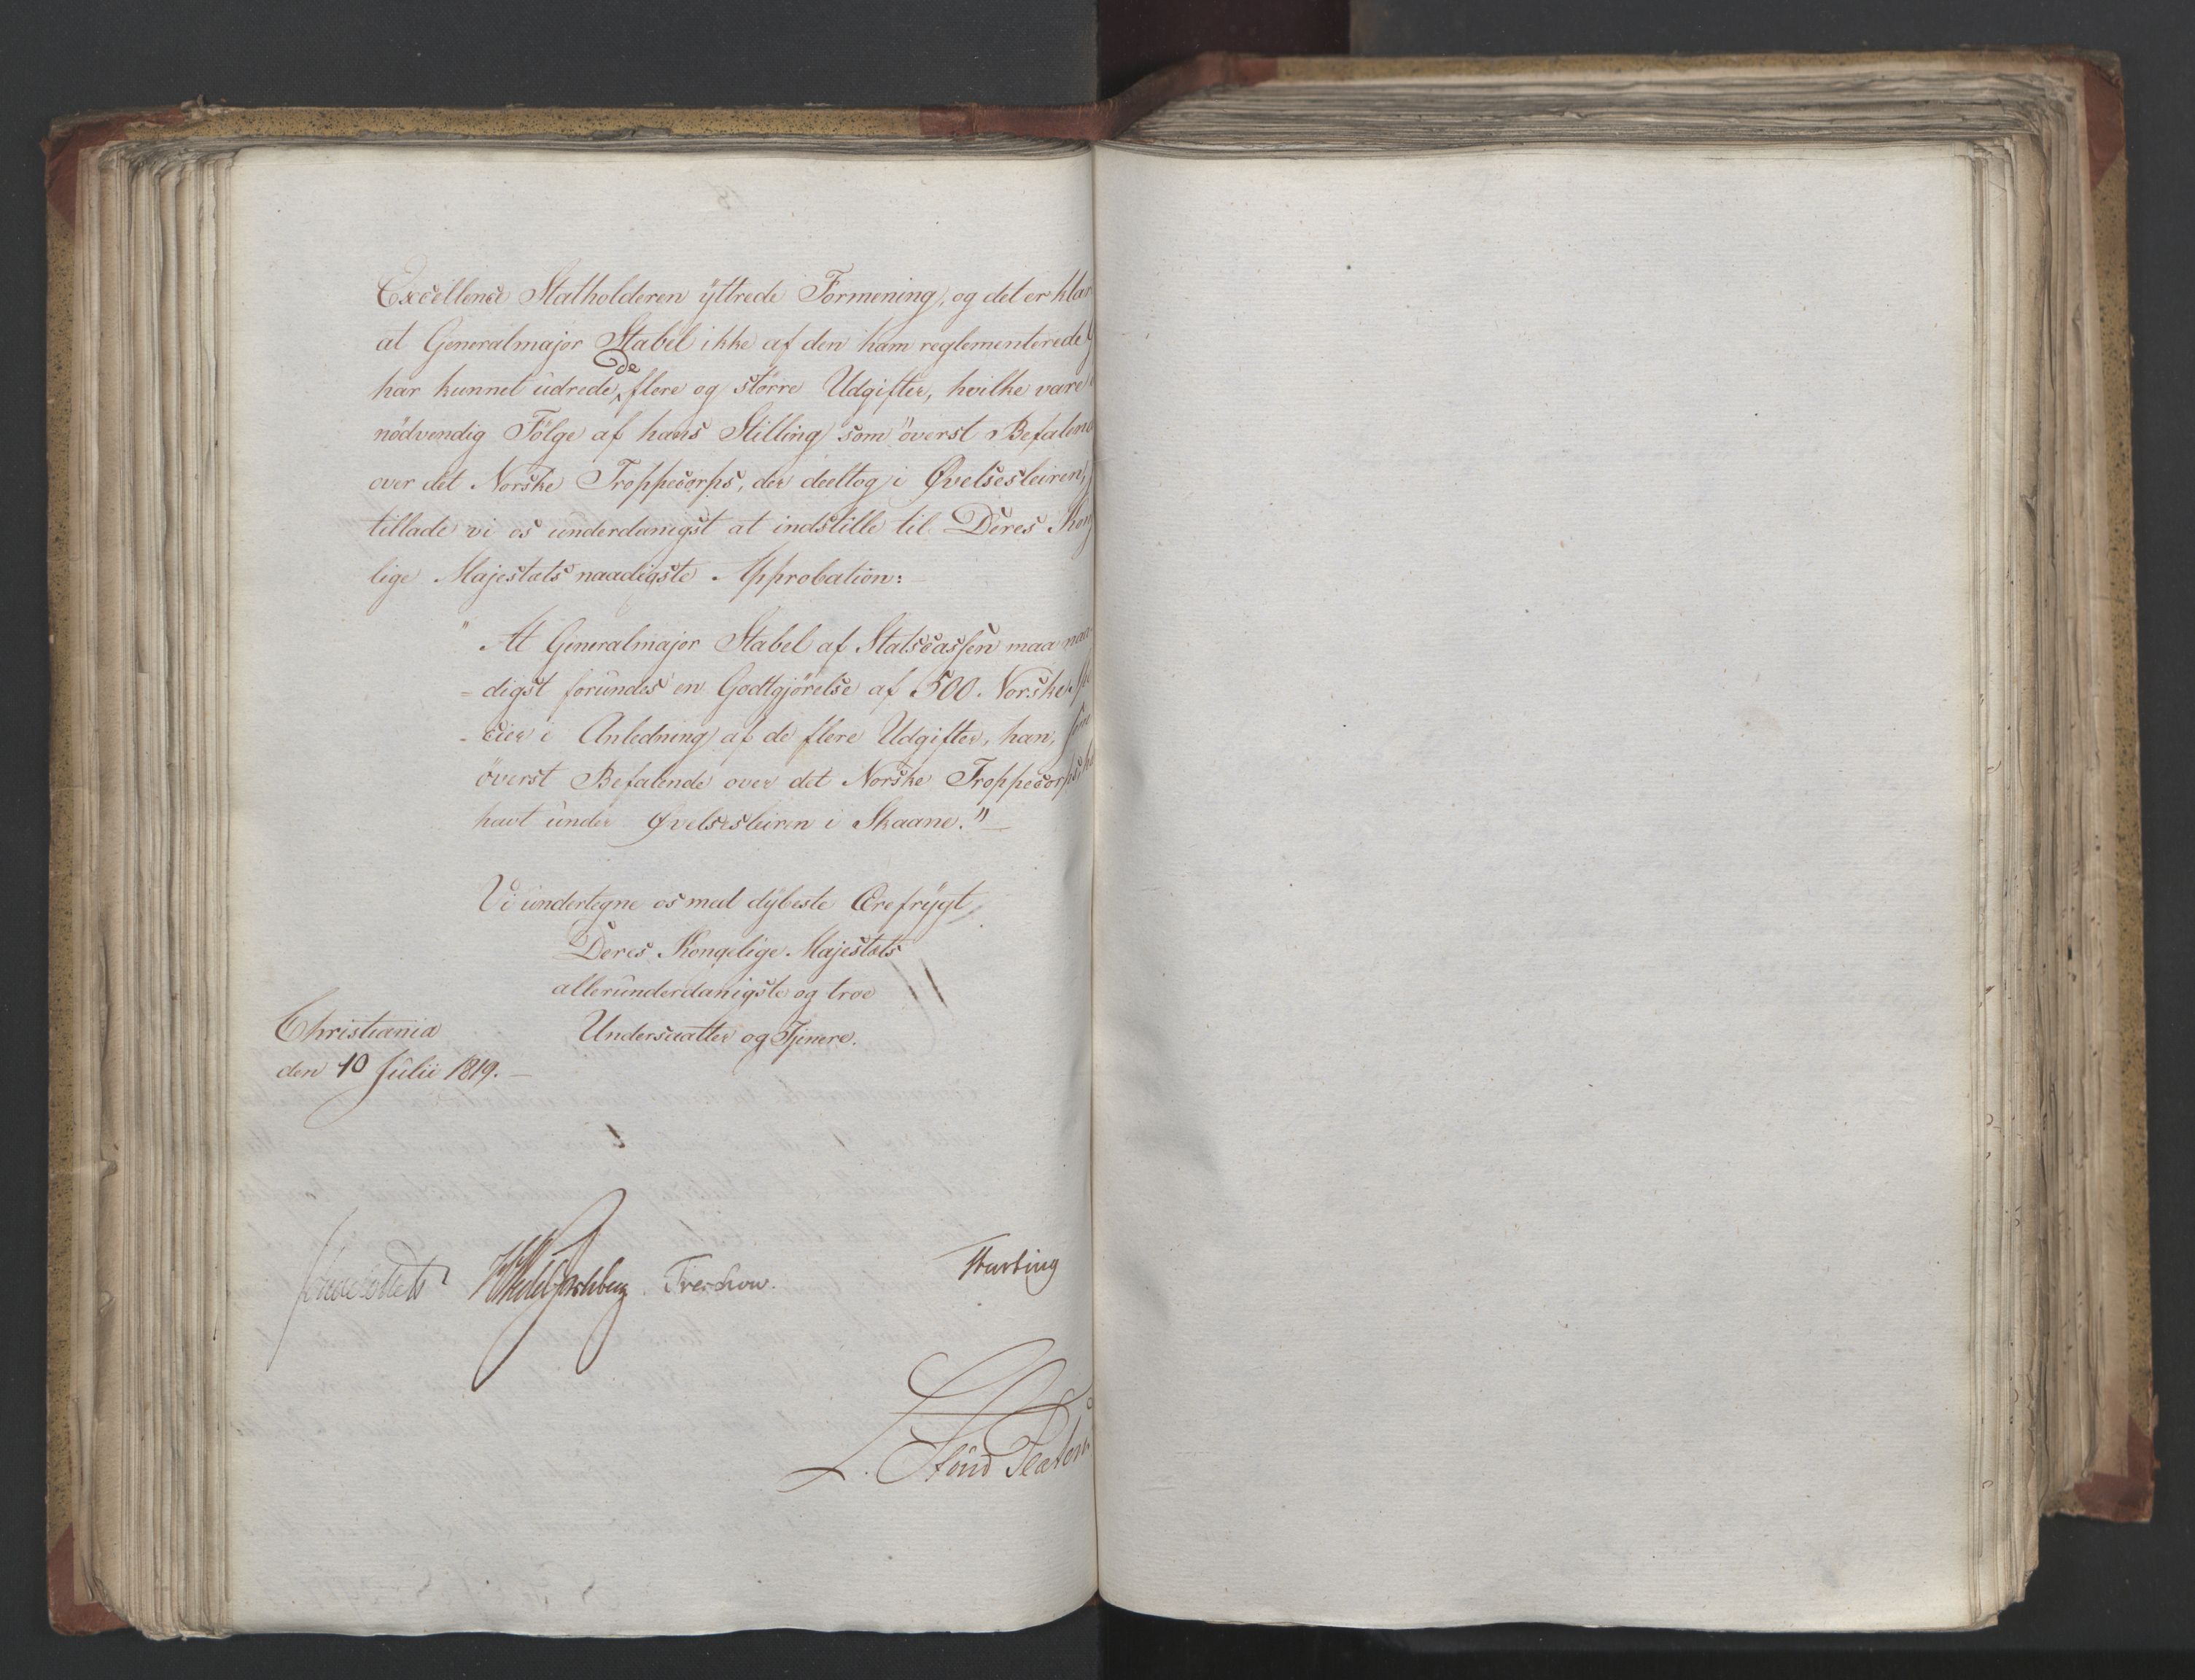 Excellence Statholderen yttrede Formening, og det er klar
at Generalmajor Stabel ikke af den ham reglementerede
har kunnet udrede de flere og större Udgifter, hvilke vare
nödvendig Fölge af hans Stilling som överst Befalend
over det Norske Troppecorps, der deeltog i Øvelsesleiren,
tillade vi os underdanigst at indstille til Deres Kong
lige Majestæts naadigste Approbation:
" At Generalmajor Stabel af Statscassen maa naa-
- digst forundes en Godtgjörelse af 500 Norske Spe
- cier i Anledning af de flere Udgifter, han, som
överst Befalende over det Norske Troppecorps, ha
havt under Øvelsesleiren i Skaane." -
Vi undertegne os med dybeste Ærefrygt
Deres Kongelige Majestæts
allerunderdanigste og troe
Undersaatter og Tjenere.
Christiania
den 10 Julii 1819. -
Treschow.